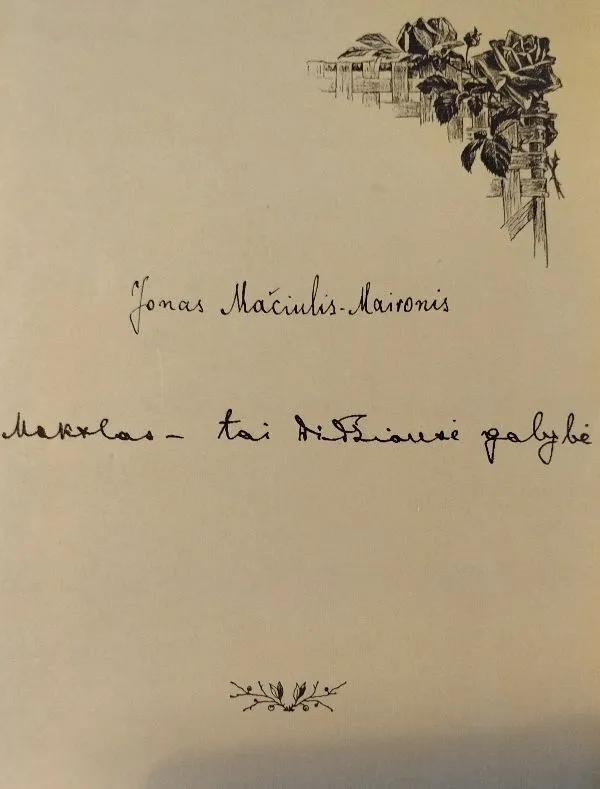 Jonas Mačiulis-Maironis
Mokslas – tai didžiausė galybė